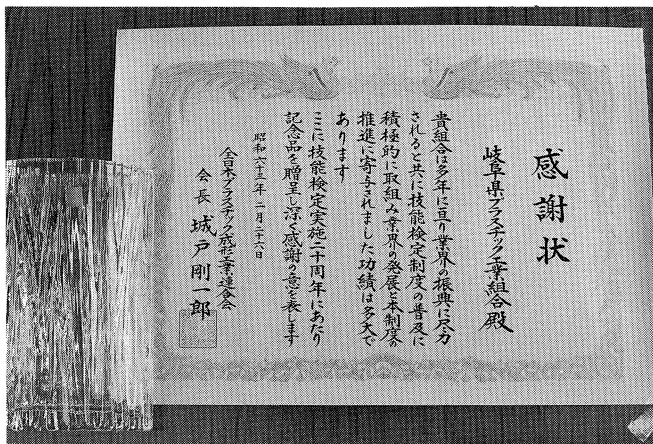 感謝状
岐阜県プラスチック工業組合殿
貴組合は多年に亘り業界の振興に尽力
されると共に技能検定制度の普及に
積極的に取組み業界の発展と本制度の
推進に寄与されました功績は多大で
あります
ここに技能検定実施二十周年にあたり
記念品を贈呈し深く感謝の意を表します
昭和六十三年 二月二十六日
全日本プラスチック成形工業連合会
会長 城戸剛一郎